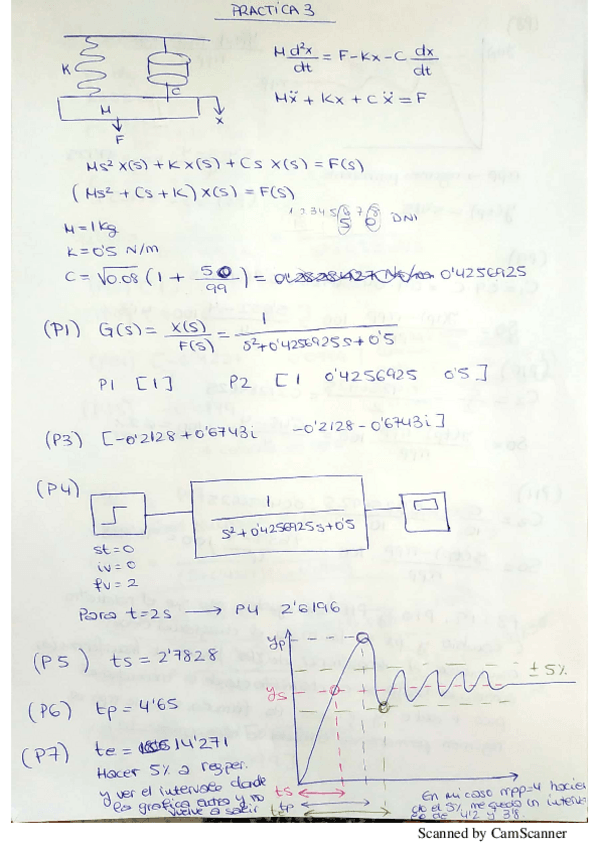 PRACTICA 3
K
C
M
F
x
M d²x/dt = F - Kx - C dx/dt
Mẍ + Kx + Cẍ = F
Ms² X(s) + K X(s) + Cs X(s) = F(s)
(Ms² + Cs + K) X(s) = F(s)
1 2 3 4 5 6 7 8
5 0 DNI
M = 1 Kg
K = 0'5 N/m
C = √0.08 (1 + 50/99) = 0'4256925
(P1) G(s) = X(s)/F(s) = 1/(s²+0'4256925s+0'5)
P1 [1] P2 [1 0'4256925 0'5]
(P3) [-0'2128+0'6743i -0'2128-0'6743i]
(P4)
1/(s²+0'4256925s+0'5)
st=0
iv=0
fv=2
Para t=2s → P4 2'6196
(P5) ts = 2'7828
(P6) tp = 4'65
(P7) te = 14'271
Hacer 5% a regper.
y ver el intervalo donde
la grafica entra y no
vuelve a salir
yp
ys
± 5%
ts
tp
te
En mi caso mpp=4 hacien
do el 5% me queda un interva
lo de 4'2 y 3'8.
Scanned by CamScanner